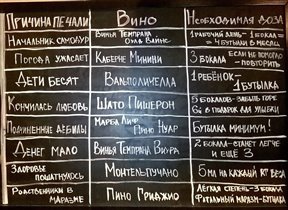 Причина печали
Вино
Необходимая доза
Начальник самодур
Винья Темпрана
Олд Вайнс
1 рабочий день - 1 бокал =
= 4 бутылки в месяц
Погода ужасает
Каберне Минини
3 бокала
Если не помогло -
повторить
Дети бесят
Вальполичелла
1 ребёнок -
1 бутылка
Кончилась любовь
Шато Пишерон
5 бокалов - забыть горе
6й в подарок для улыбки
Подчиненные дебилы
Пино Нуар
Бутылка минимум!
Денег мало
Винья Темпрана Виура
2 бокала - станет легче
и ещё 3
Здоровье
пошатнулось
Монтепульчано
на каждый кг веса
Родственники в
маразме
Пино Гриджио
Лёгкая степень - 3 бокала
Фатальный маразм - бутылка